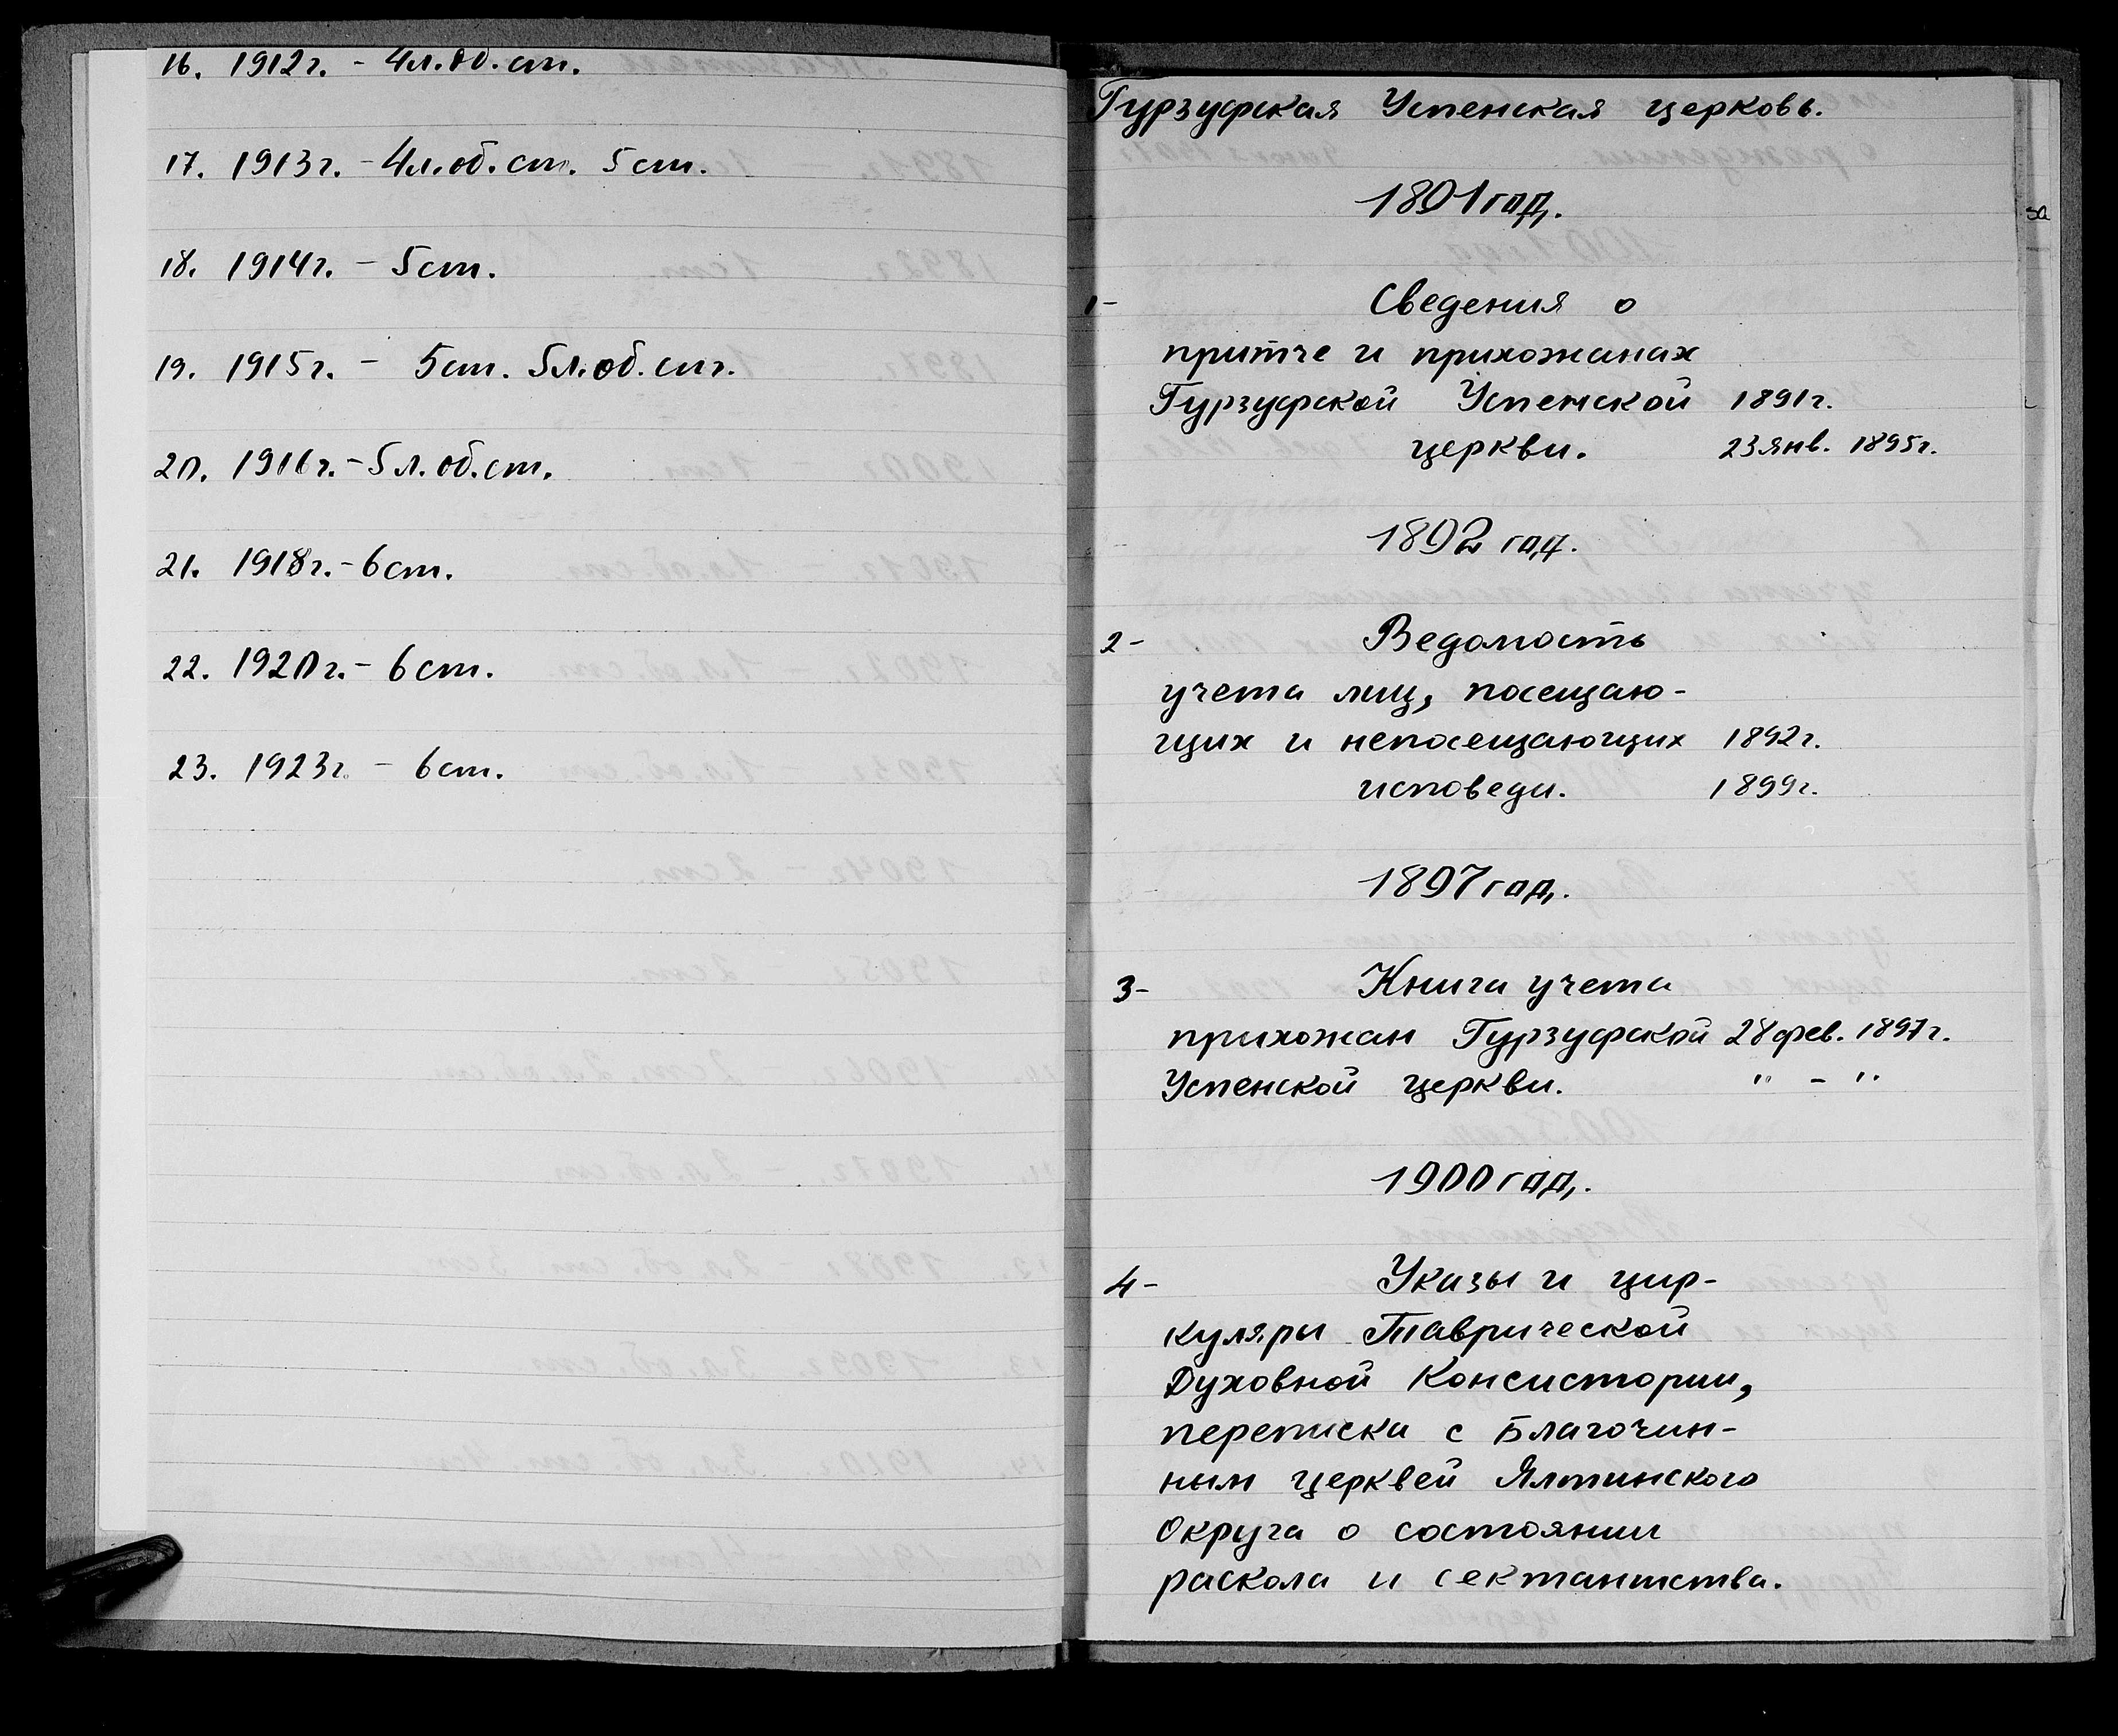 16. 1912г. - 4л.об.ст.
17. 1913г. - 4л.об.ст. 5ст.
18. 1914г. - 5ст.
19. 1915г. - 5ст. 5л.об.ст.
20. 1916г. - 5л.об.ст.
21. 1918г. - 6ст.
22. 1920г. - 6ст.
23. 1923г. - 6ст.
Гурзуфская Успенская церковь.
1891 год.
1- Сведения о
притче и прихожанах
Гурзуфской Успенской 1891г.
церкви. 23 янв. 1895г.
1892 год.
2- Ведомость
учета лиц, посещаю-
щих и непосещающих 1892г.
исповеди. 1899г.
1897 год.
3- Книга учета
прихожан Гурзуфской 28 фев. 1897г.
Успенской церкви. " - "
1900 год.
4- Указы и цир-
куляры Таврической
Духовной Консистории,
переписка с Благочин-
ным церквей Ялтинского
Округа о состоянии
раскола и сектантства.
за